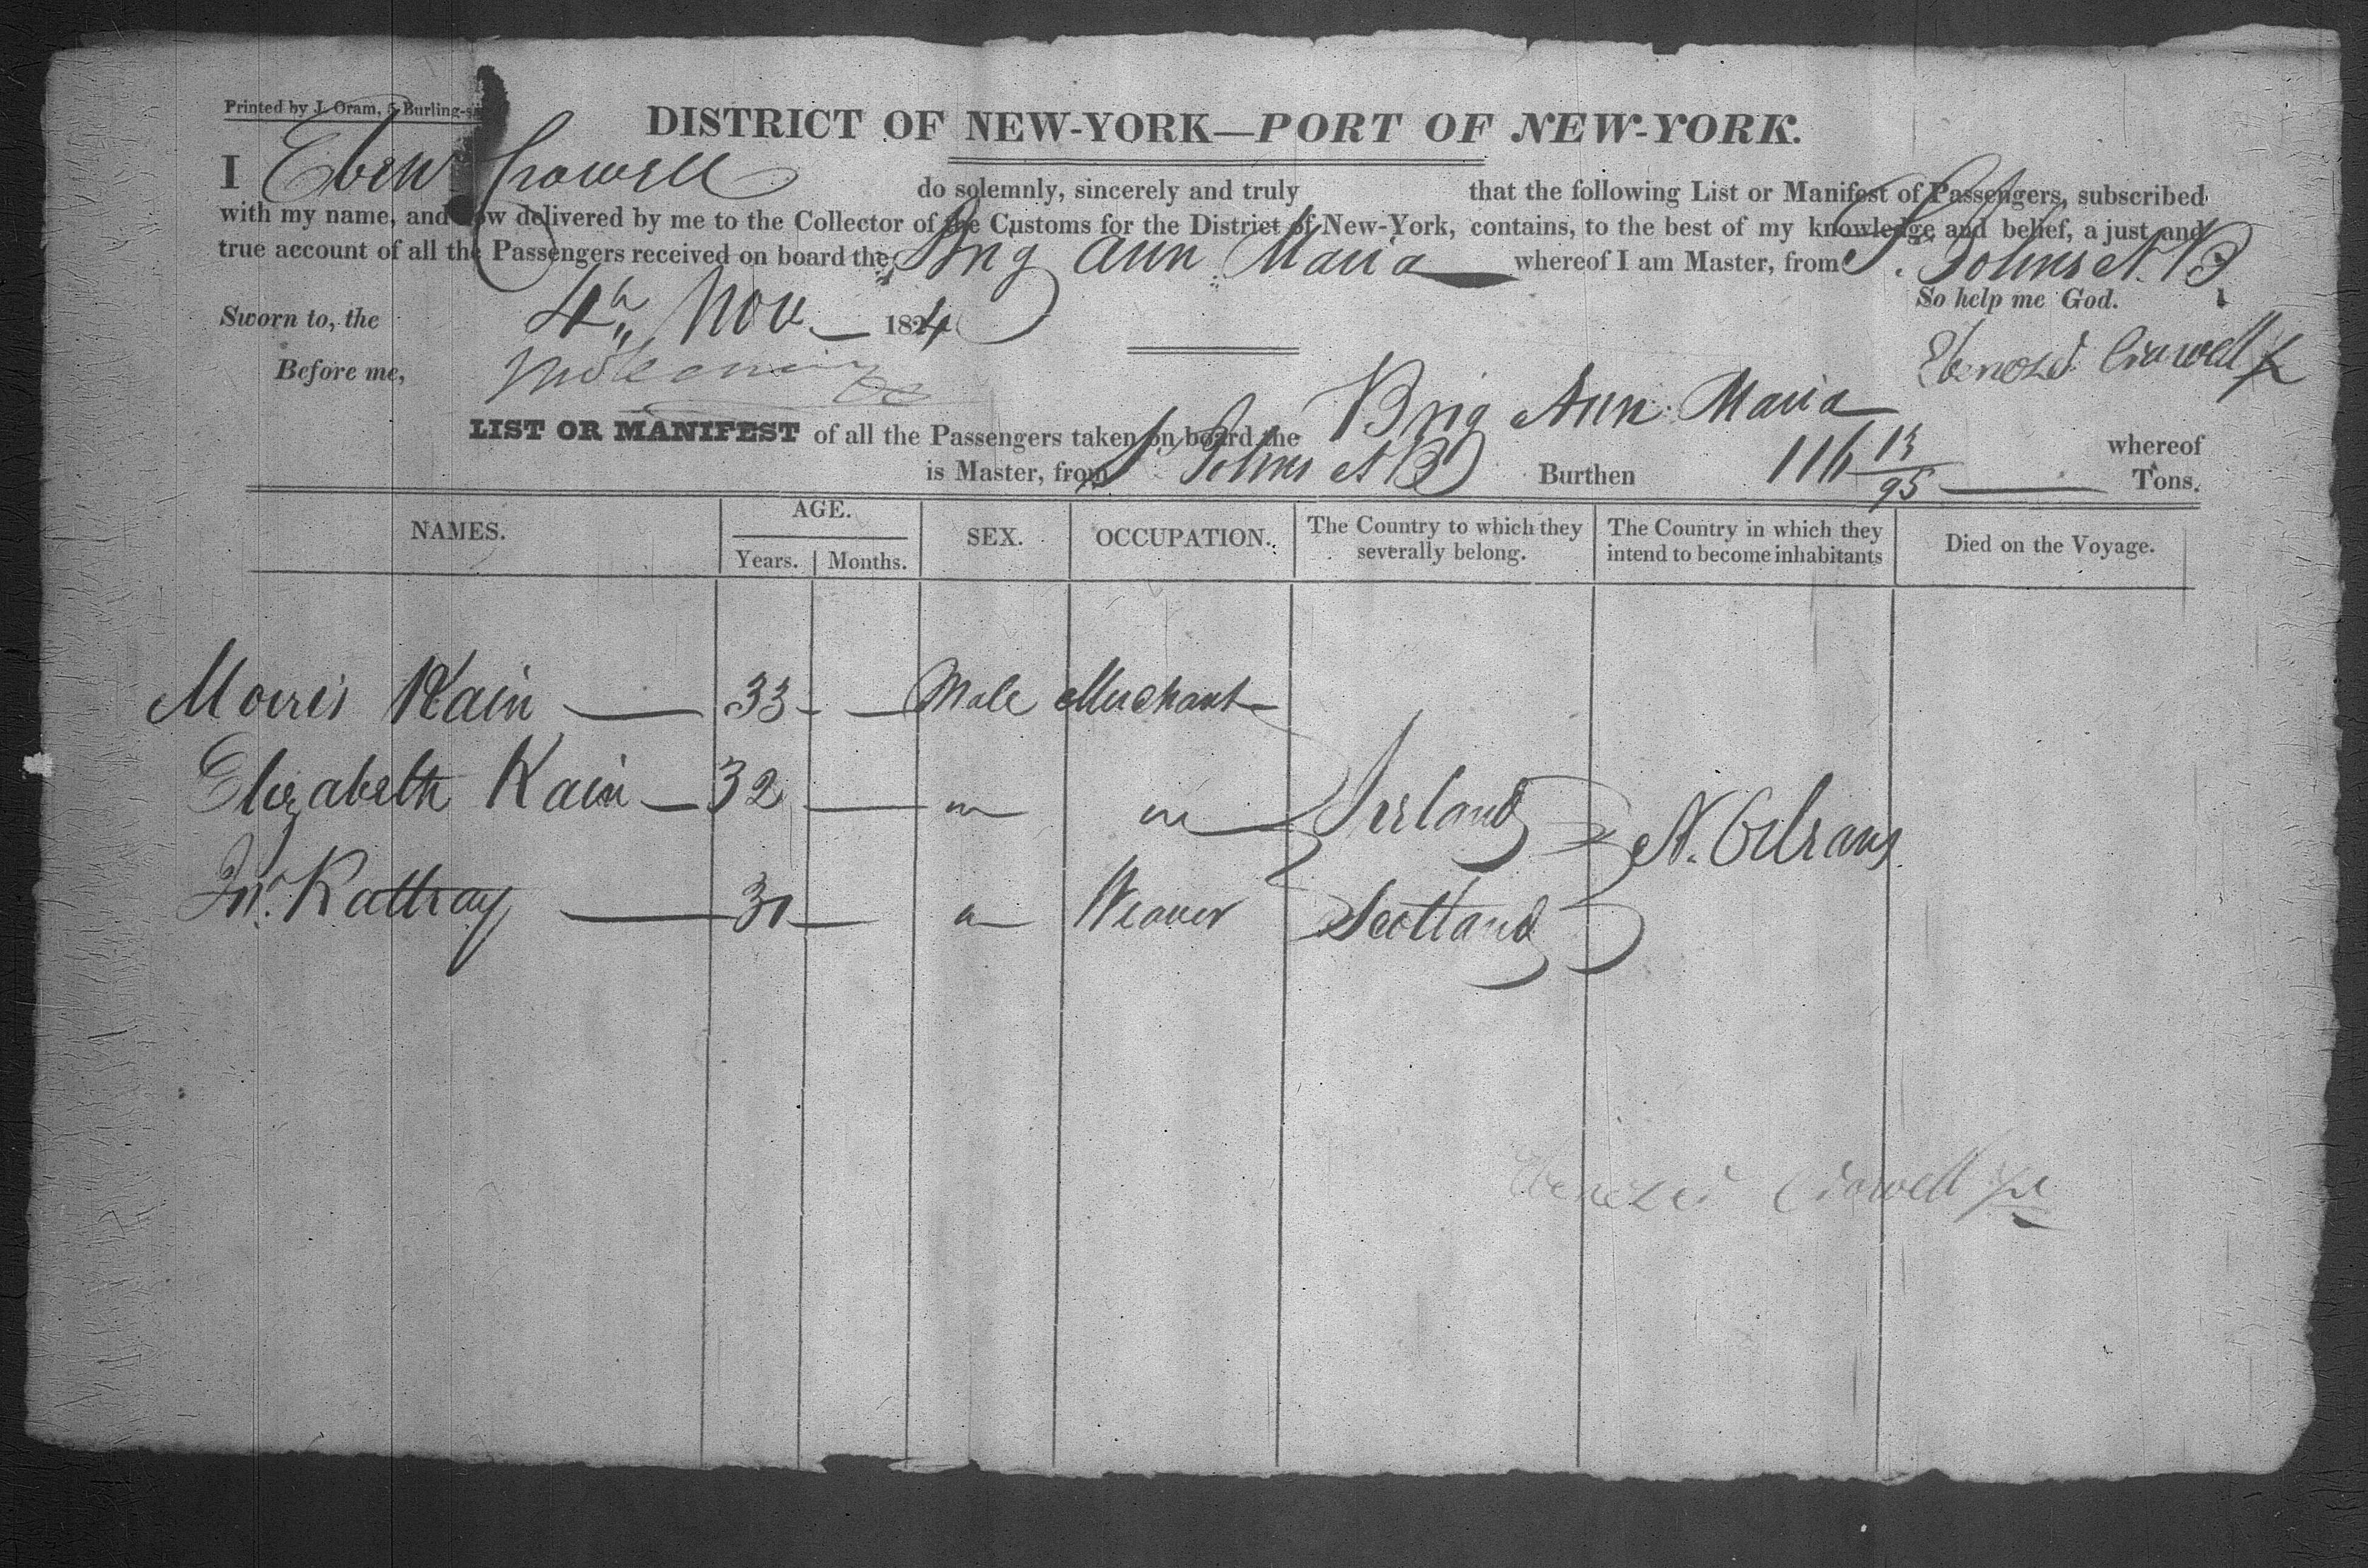 Printed by J. Oram, 5 Burling-
DISTRICT OF NEW-YORK—PORT OF NEW-YORK.
I Eben Crowell do solemnly, sincerely and truly that the following List or Manifest of Passengers, subscribed
with my name, and now delivered by me to the Collector of the Customs for the District of New-York, contains, to the best of my knowledge and belief, a just and
true account of all the Passengers received on board the Brig Ann Maria whereof I am Master, from St. Johns N. B.
So help me God.
Sworn to, the 4th Nov 1824
Ebenezer Crowell Jr
Before me,
LIST OR MANIFEST of all the Passengers taken on board the Brig Ann Maria whereof
is Master, from St Johns N B Burthen 116 13/95 Tons.
NAMES. AGE. SEX. OCCUPATION. The Country to which they severally belong. The Country in which they intend to become inhabitants Died on the Voyage.
Years. Months.
Morris Kain 33 Male Merchant
Elizabeth Kain 32 Ireland N. Orleans
Jno. Rattray 31 Weaver Scotland
Ebenezer Crowell Jr